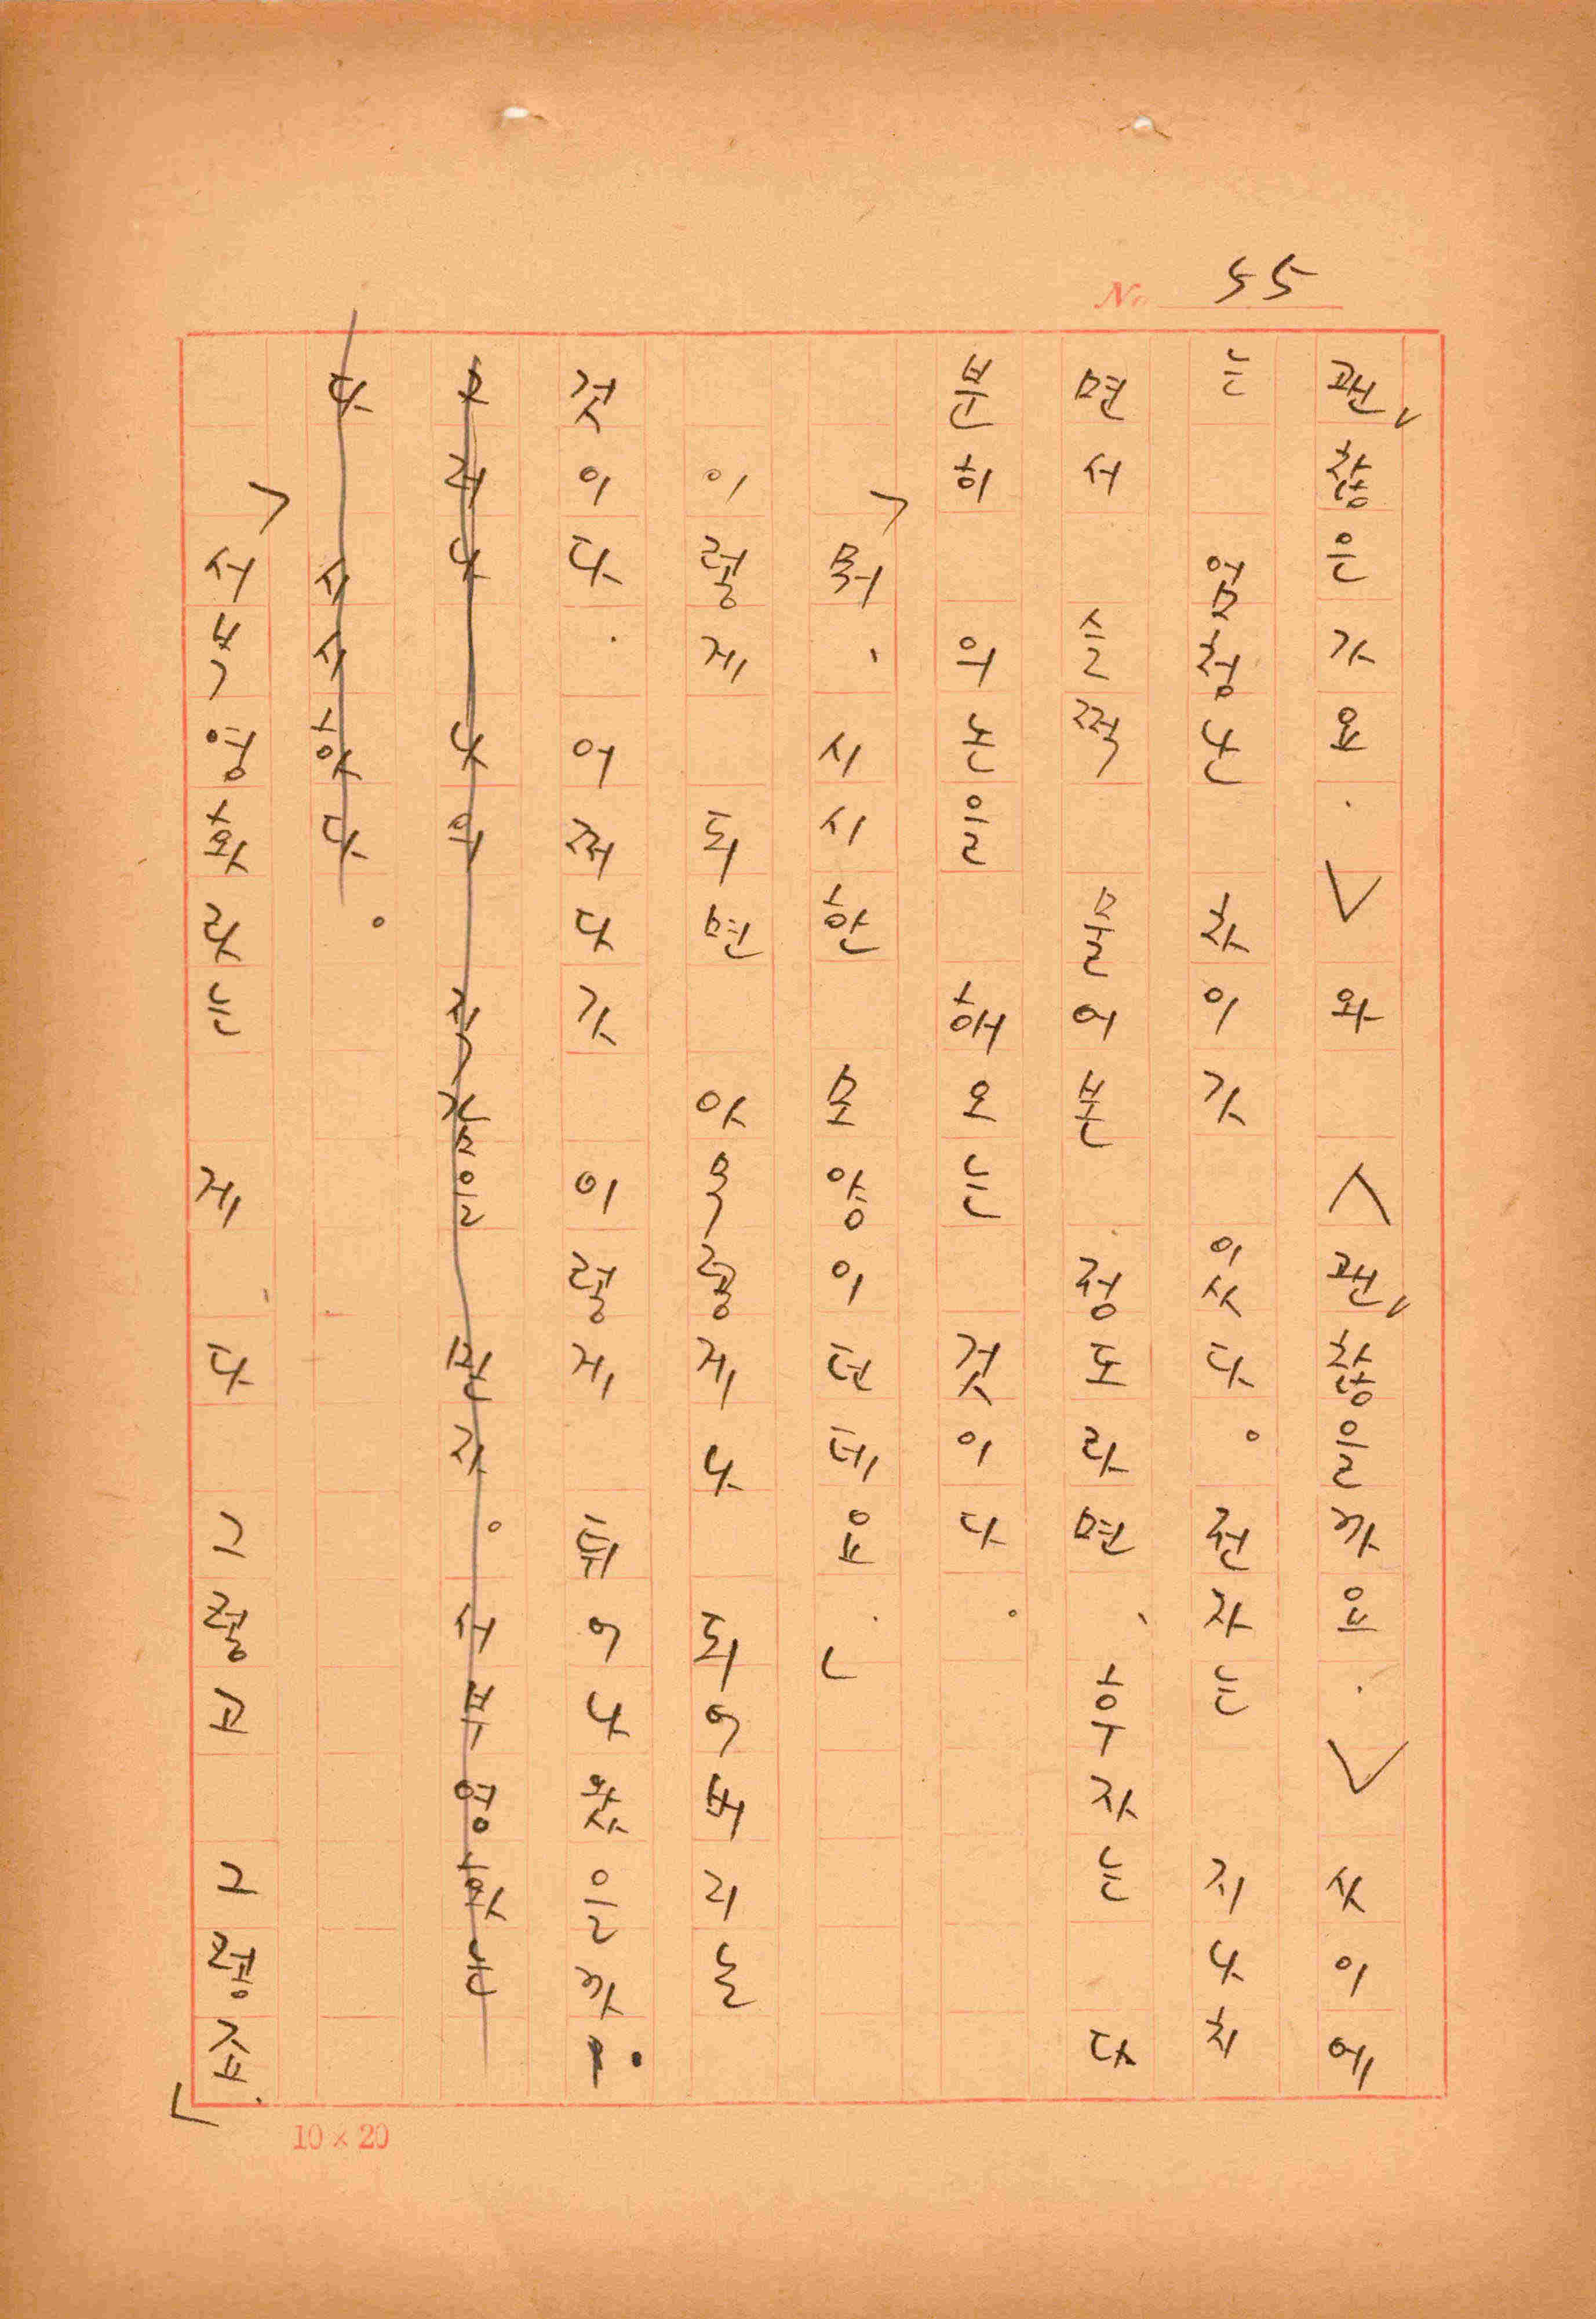 No. 55
괜찮은가요. 〉와 〈괜찮을까요. 〉 사이에
는 엄청난 차이가 있다. 전자는 지나치
면서 슬쩍 물어본 정도라면, 후자는 다
분히 의논을 해오는 것이다.
「뭐, 시시한 모양이던데요.」
이렇게 되면 야목렁게나 되어버리는
것이다. 어쩌다가 이렇게 튀어나왔을까!.
그러나 나의 직감을 믿자. 서부영화는
다 시시하다.
「서부영화라는 게 다 그렇고 그렇죠.」
10 × 20